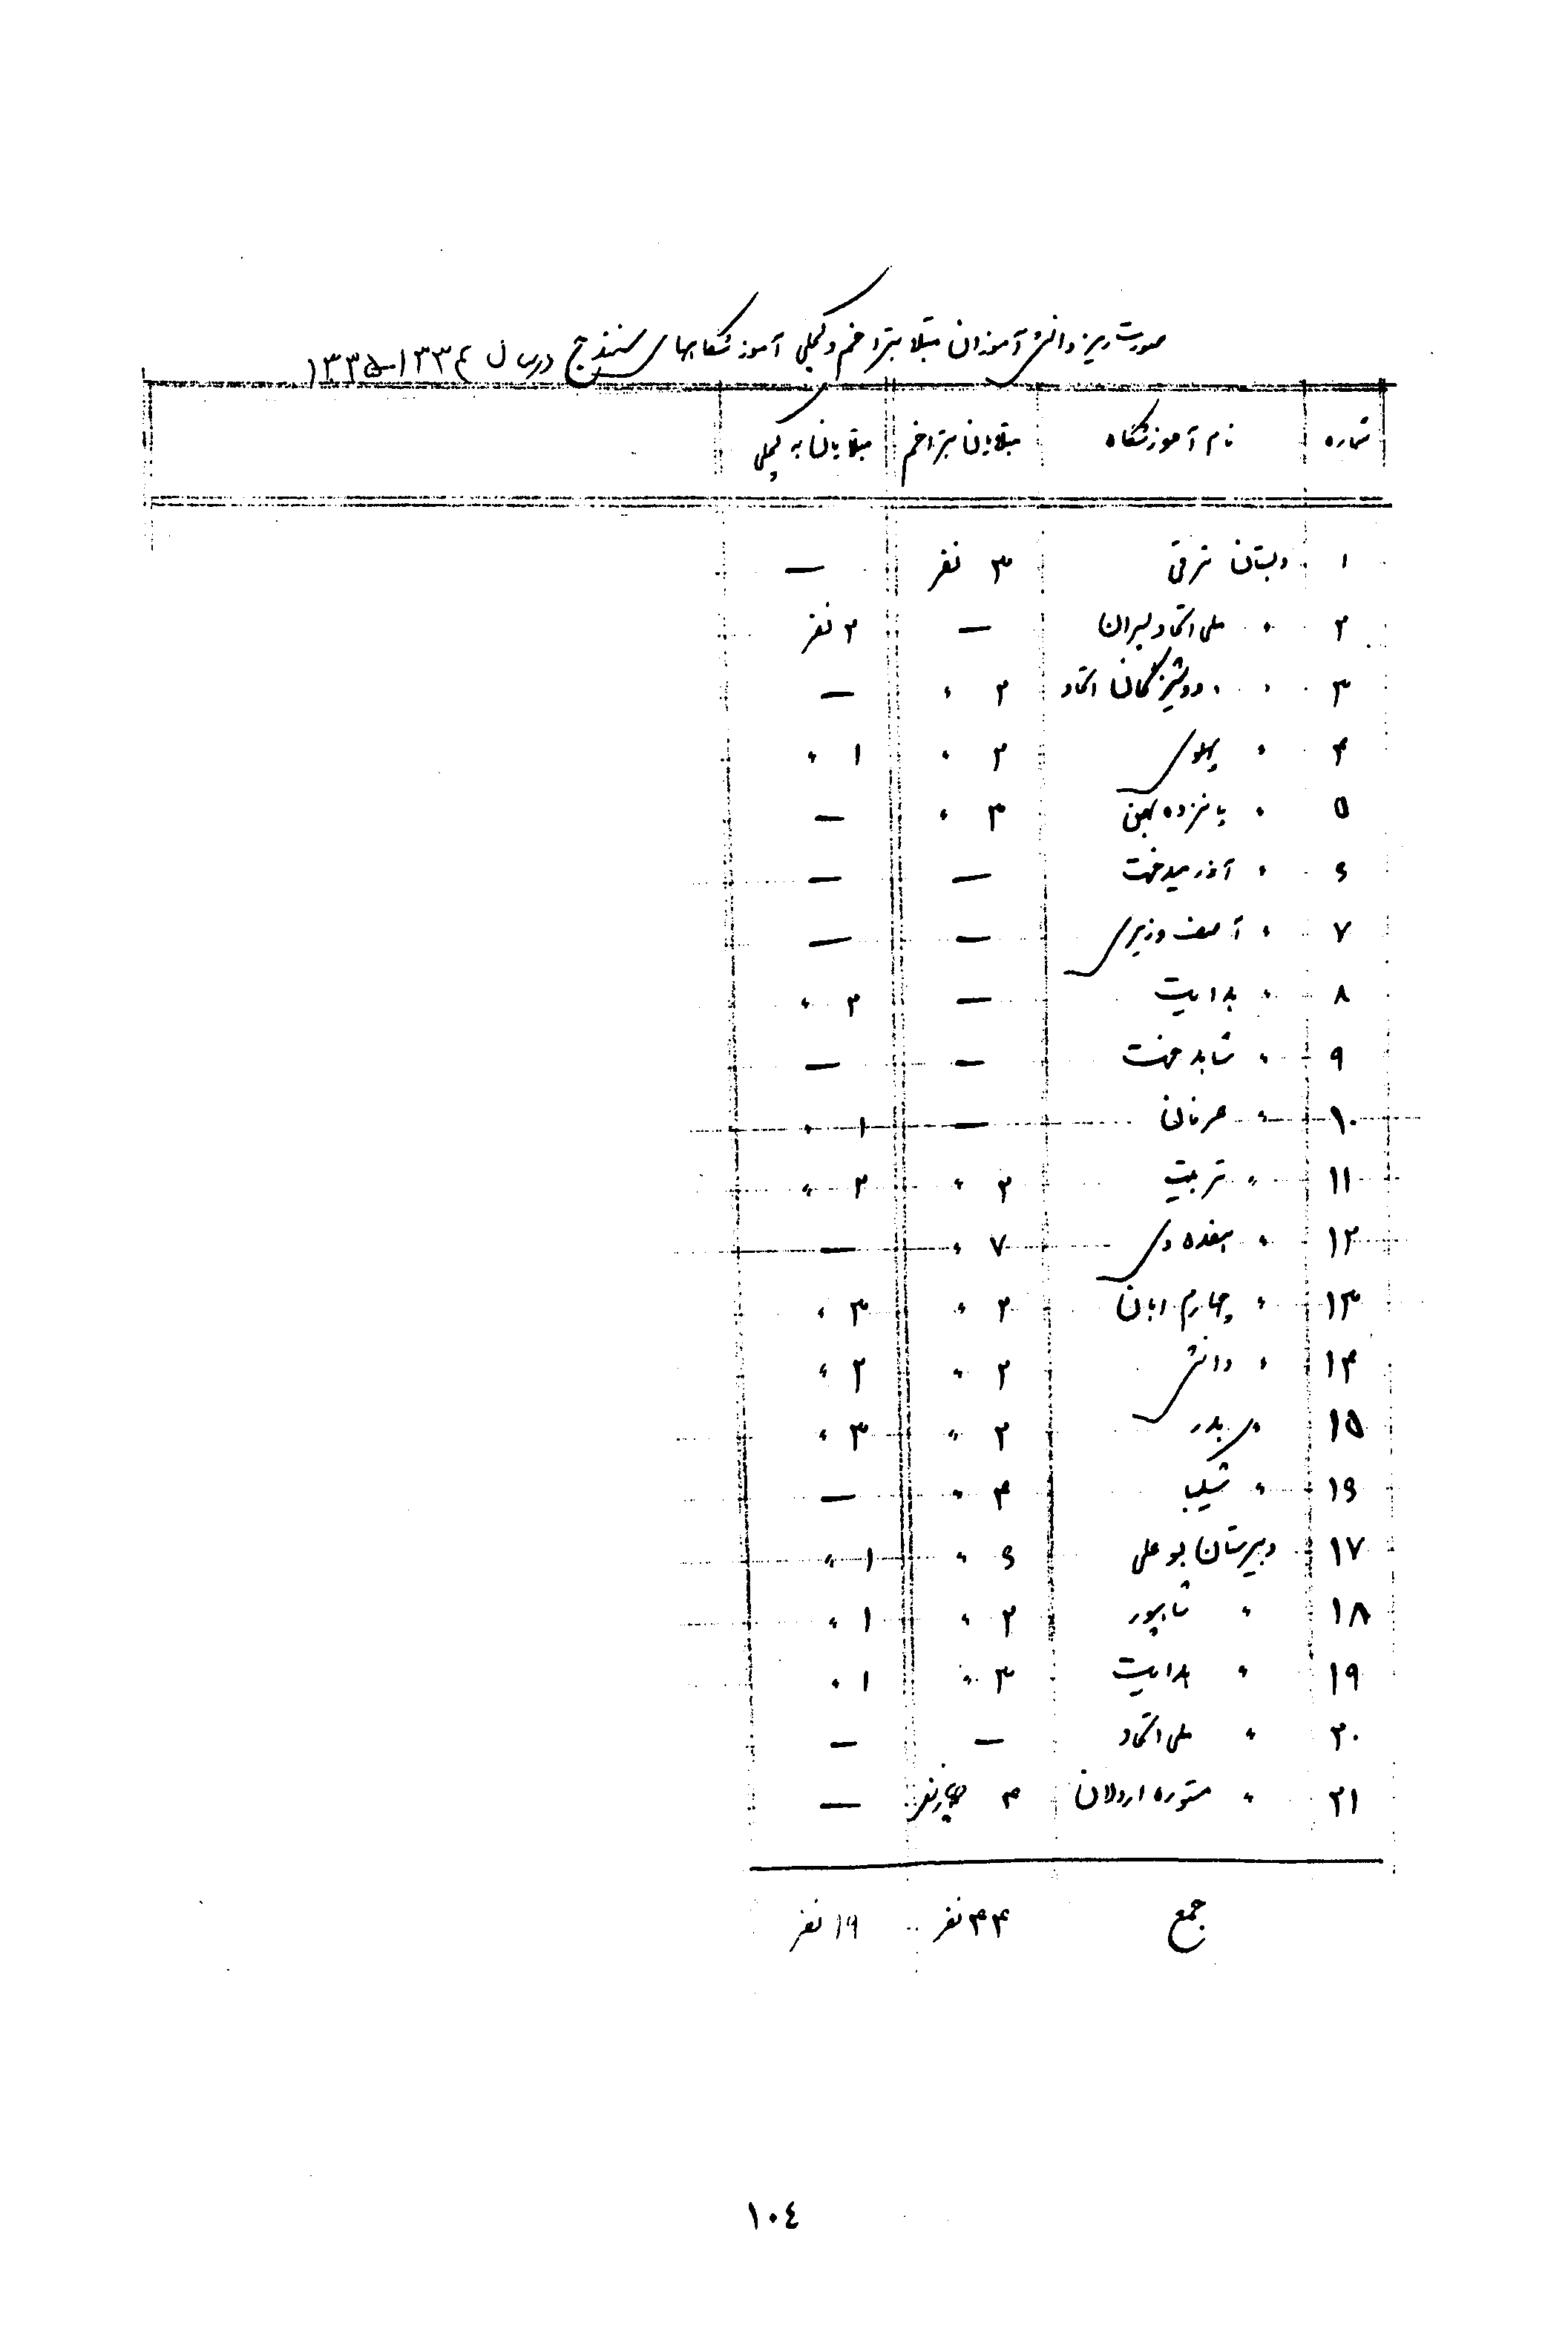 صورت ریز دانش آموزان مبتلا بتراخم و کچلی آموزشگاههای سنندج در سال ۱۳۳۴-۱۳۳۵
شماره نام آموزشگاه مبتلایان بتراخم مبتلایان به کچلی
۱ دبستان ترقی ۳ نفر —
۲ " ملی اتحاد پسران — ۲ نفر
۳ " " دوشیزگان اتحاد ۲ " —
۴ " پهلوی ۲ " ۱ "
۵ " پانزده بهمن ۳ " —
۶ " آذرمیدخت — —
۷ " آصف وزیری — —
۸ " هدایت — ۲ "
۹ " شاهدخت — —
۱۰ " عرفانی — ۱ "
۱۱ " تربیت ۲ " ۲ "
۱۲ " هفده دی ۷ " —
۱۳ " چهارم ابان ۲ " ۳ "
۱۴ " دانش ۲ " ۲ "
۱۵ " بدر ۲ " ۳ "
۱۶ " شکیب ۴ " —
۱۷ دبیرستان بوعلی ۶ " ۱ "
۱۸ " شاهپور ۲ " ۱ "
۱۹ " هدایت ۳ " ۱ "
۲۰ " ملی اتحاد — —
۲۱ " مستوره اردلان ۴ چهار نفر —
جمع ۴۴ نفر ۱۹ نفر
۱۰٤